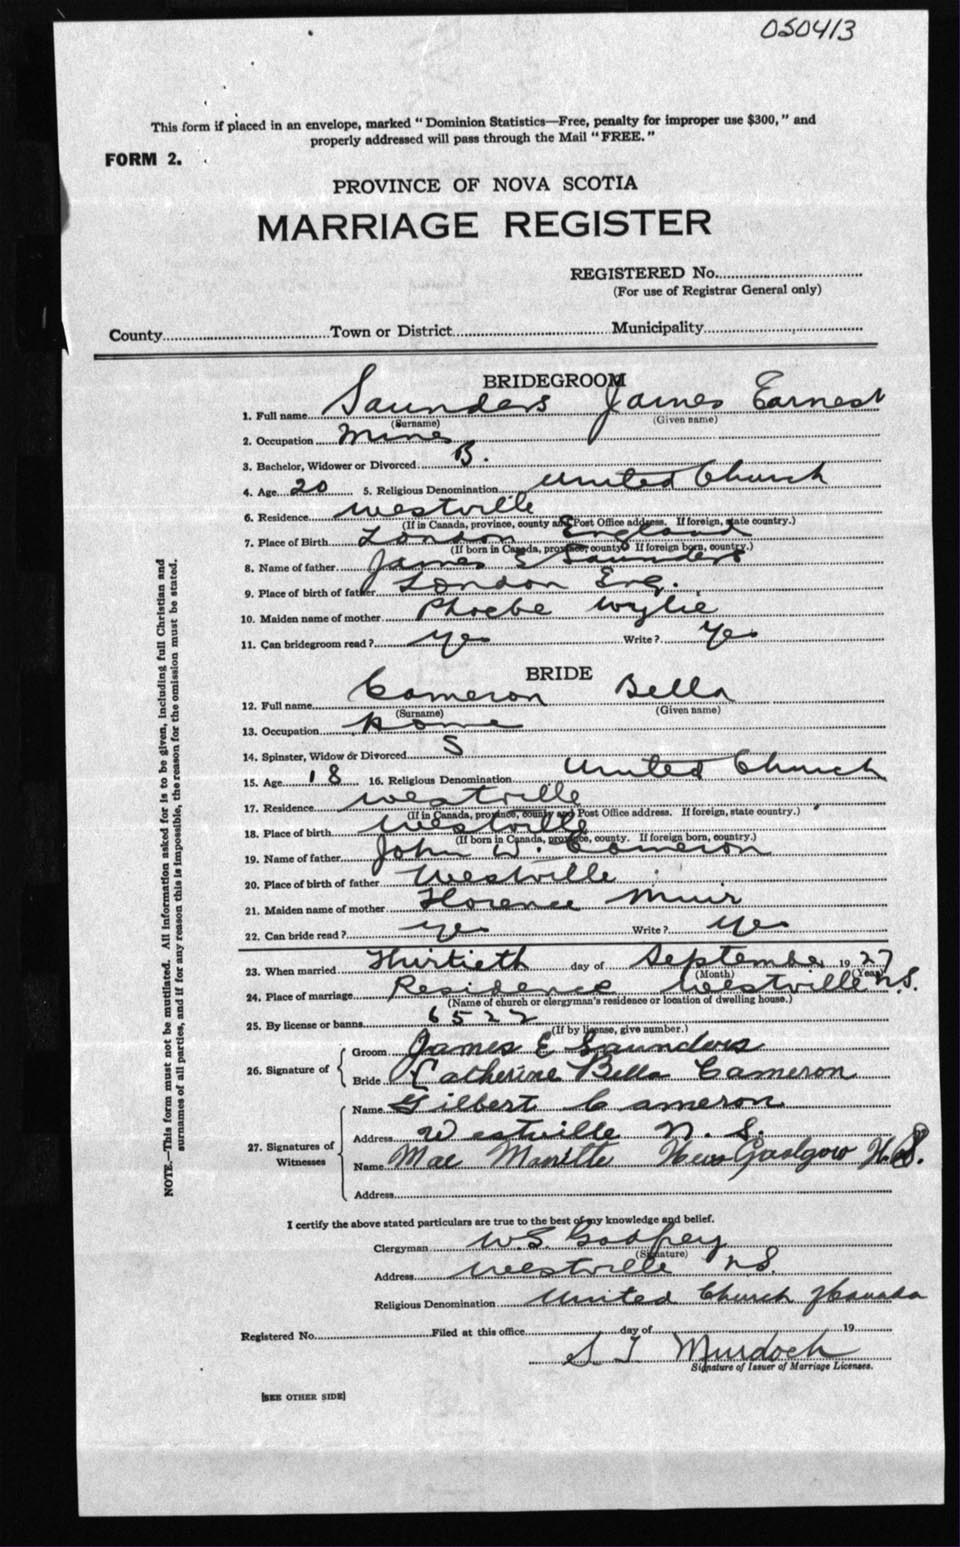 050413
This form if placed in an envelope, marked "Dominion Statistics—Free, penalty for improper use $300," and
properly addressed will pass through the Mail "FREE."
FORM 2.
PROVINCE OF NOVA SCOTIA
MARRIAGE REGISTER
REGISTERED No.
(For use of Registrar General only)
County Town or District Municipality
BRIDEGROOM
1. Full name Saunders James Earnest
(Surname) (Given name)
2. Occupation Miner
3. Bachelor, Widower or Divorced B.
4. Age 20 5. Religious Denomination United Church
6. Residence Westville
(If in Canada, province, county and Post Office address. If foreign, state country.)
7. Place of Birth London England
(If born in Canada, province, county. If foreign born, country.)
8. Name of father James E Saunders
9. Place of birth of father London Eng.
10. Maiden name of mother Phoebe Wylie
11. Can bridegroom read? Yes Write? Yes
BRIDE
12. Full name Cameron Bella
(Surname) (Given name)
13. Occupation Home
14. Spinster, Widow or Divorced S
15. Age 18 16. Religious Denomination United Church
17. Residence Westville
(If in Canada, province, county and Post Office address. If foreign, state country.)
18. Place of birth Westville
(If born in Canada, province, county. If foreign born, country.)
19. Name of father John W. Cameron
20. Place of birth of father Westville
21. Maiden name of mother Florence Muir
22. Can bride read? Yes Write? Yes
23. When married Thirtieth day of September 1927
(Month) (Year)
24. Place of marriage Residence Westville N.S.
(Name of church or clergyman's residence or location of dwelling house.)
25. By license or banns 6522
(If by license, give number.)
26. Signature of
Groom James E Saunders
Bride Catherine Bella Cameron
27. Signatures of Witnesses
Name Gilbert Cameron
Address Westville N. S.
Name Mae New Glasgow N.S.
Address
I certify the above stated particulars are true to the best of my knowledge and belief.
Clergyman W.G. Godfrey
(Signature)
Address Westville N.S.
Religious Denomination United Church of Canada
Registered No. Filed at this office day of 19
S T Murdoch
Signature of Issuer of Marriage Licenses.
[SEE OTHER SIDE]
NOTE.—This form must not be mutilated. All information asked for is to be given, including full Christian and
surnames of all parties, and if for any reason this is impossible, the reason for the omission must be stated.